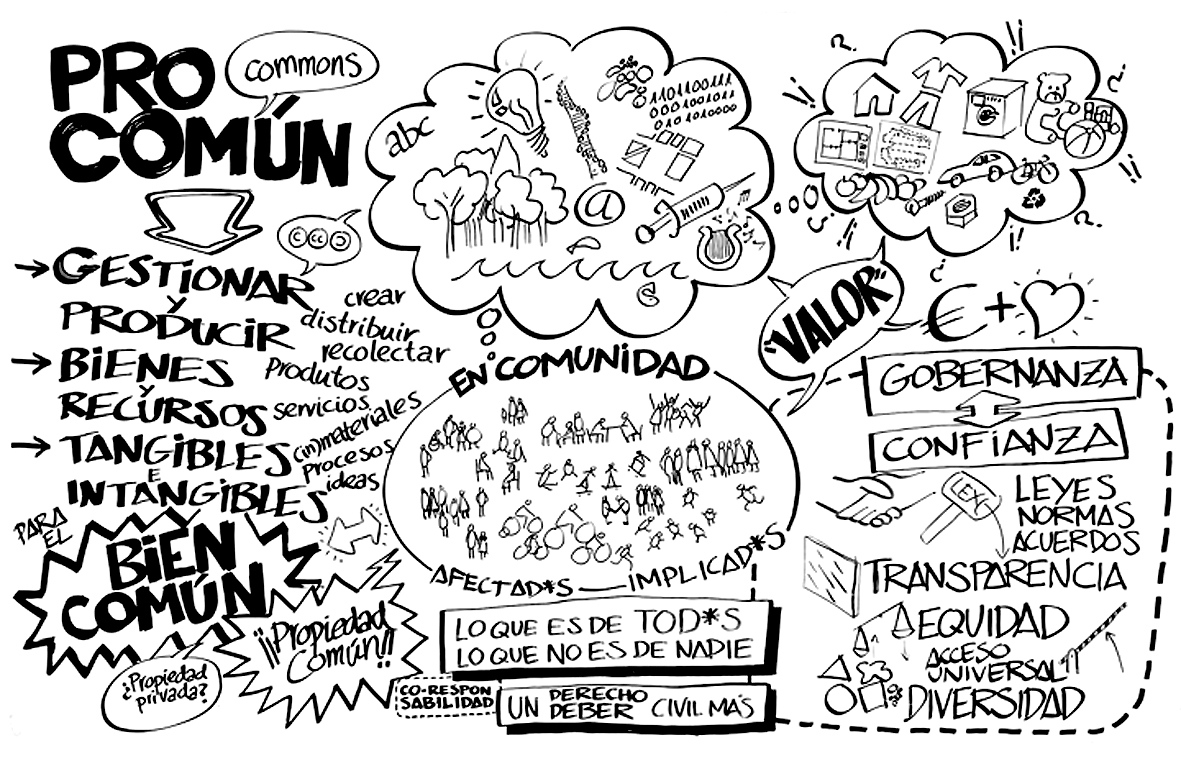 PRO
COMÚN
commons
abc
01100111
0001001011
010 1010000
@
©
© cc Ɔ
→ GESTIONAR
Y
PRODUCIR
crear
distribuir
recolectar
→ BIENES
Y
RECURSOS
Produtos
servicios
→ TANGIBLES
E
INTANGIBLES
(in)materiales
procesos
ideas
PARA
EL
BIEN
COMÚN
¡¡Propiedad
Común!!
¿Propiedad
privada?
EN COMUNIDAD
AFECTAD*S — IMPLICAD*S
LO QUE ES DE TOD*S
LO QUE NO ES DE NADIE
CO-RESPON
SABILIDAD
UN DERECHO
DEBER CIVIL MÁS
"VALOR"
€ +
GOBERNANZA
CONFIANZA
LEX
LEYES
NORMAS
ACUERDOS
TRANSPARENCIA
EQUIDAD
ACCESO
UNIVERSAL
DIVERSIDAD